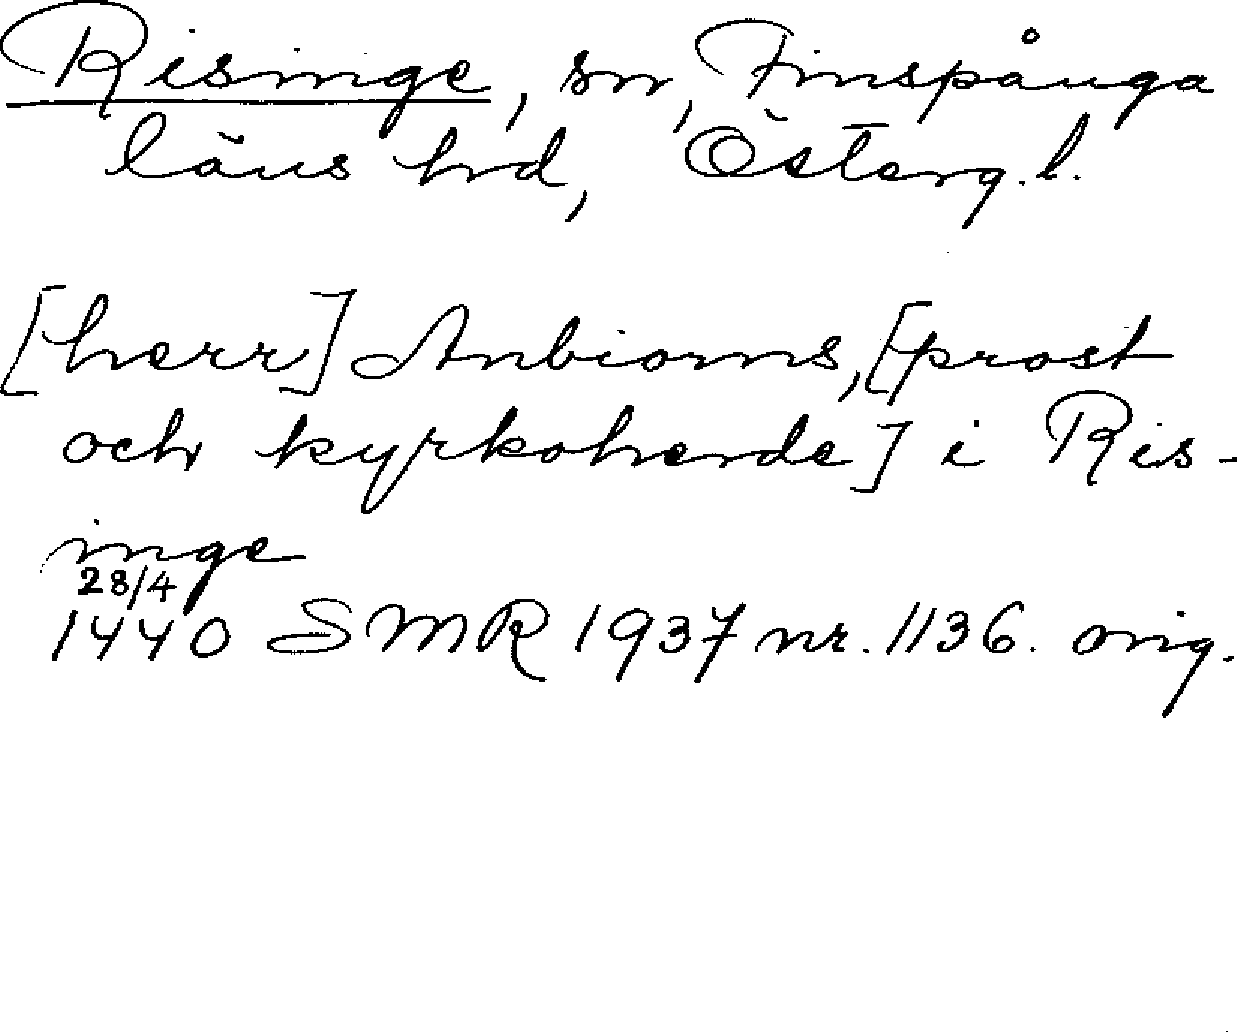 Risinge, sn, Finspånga
läns hrd, Österg. l.
[herr] Anbiorns, [prost
och kyrkoherde] i Ris-
inge
28/4
1440 SMR 1937 nr. 1136. orig.